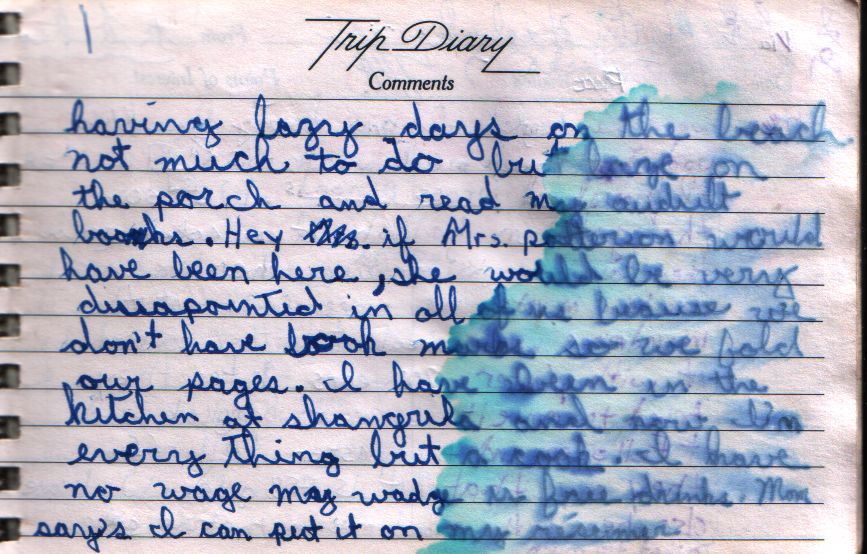 Trip Diary
Comments
having lazy days on the beach
not much to do but laze on
the porch and read my audult
books. Hey if Mrs. patterson would
have been here, she would be very
dissapointed in all of us because we
don't have book marks so we fold
our pages. I have been in the
kitchen at shangrila and now I'm
every thing but a cook. I have
no wage my wadge is free drinks. Mom
say's I can put it on my résumé